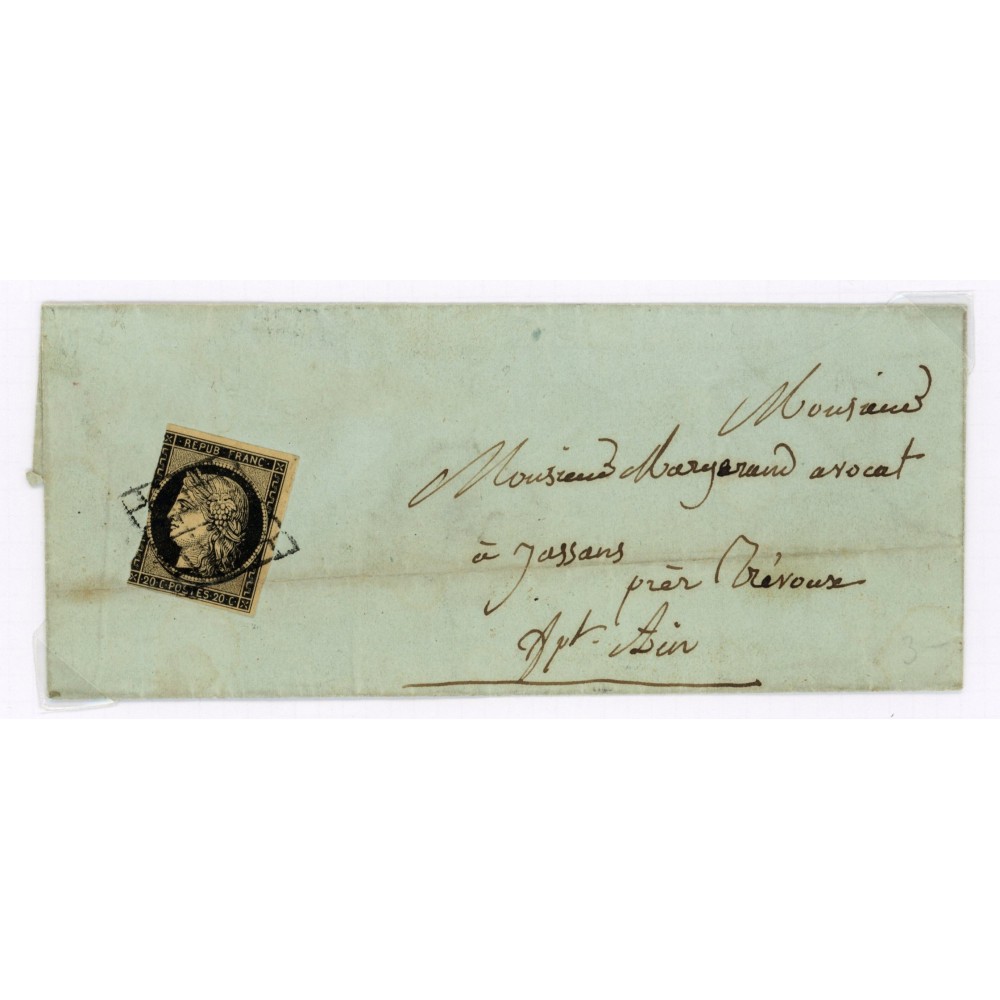 REPUB. FRANC.
20 C. POSTES. 20 C.
Monsieur
Monsieur Margerand avocat
à Jassans
près Trévoux
Dpt. Ain
3-